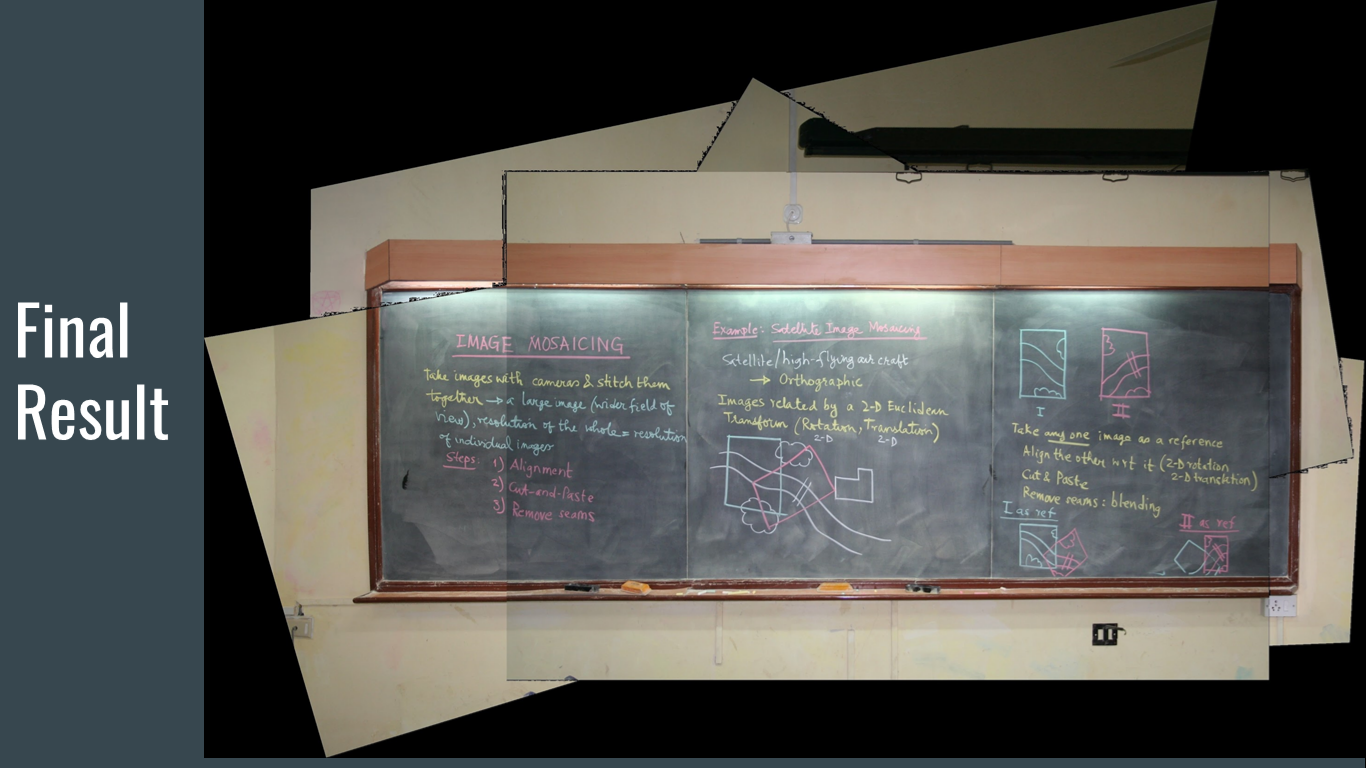 Final
Result
IMAGE MOSAICING
Take images with cameras & stitch them
together → a large image (wider field of
view), resolution of the whole = resolution
of individual images
Steps: 1) Alignment
2) Cut-and-Paste
3) Remove seams
Example: Satellite Image Mosaicing
Satellite/high-flying air craft
→ Orthographic
Images related by a 2-D Euclidean
Transform (Rotation, Translation)
2-D 2-D
I II
Take any one image as a reference
Align the other wrt it (2-D rotation
2-D translation)
Cut & Paste
Remove seams: blending
I as ref
II as ref